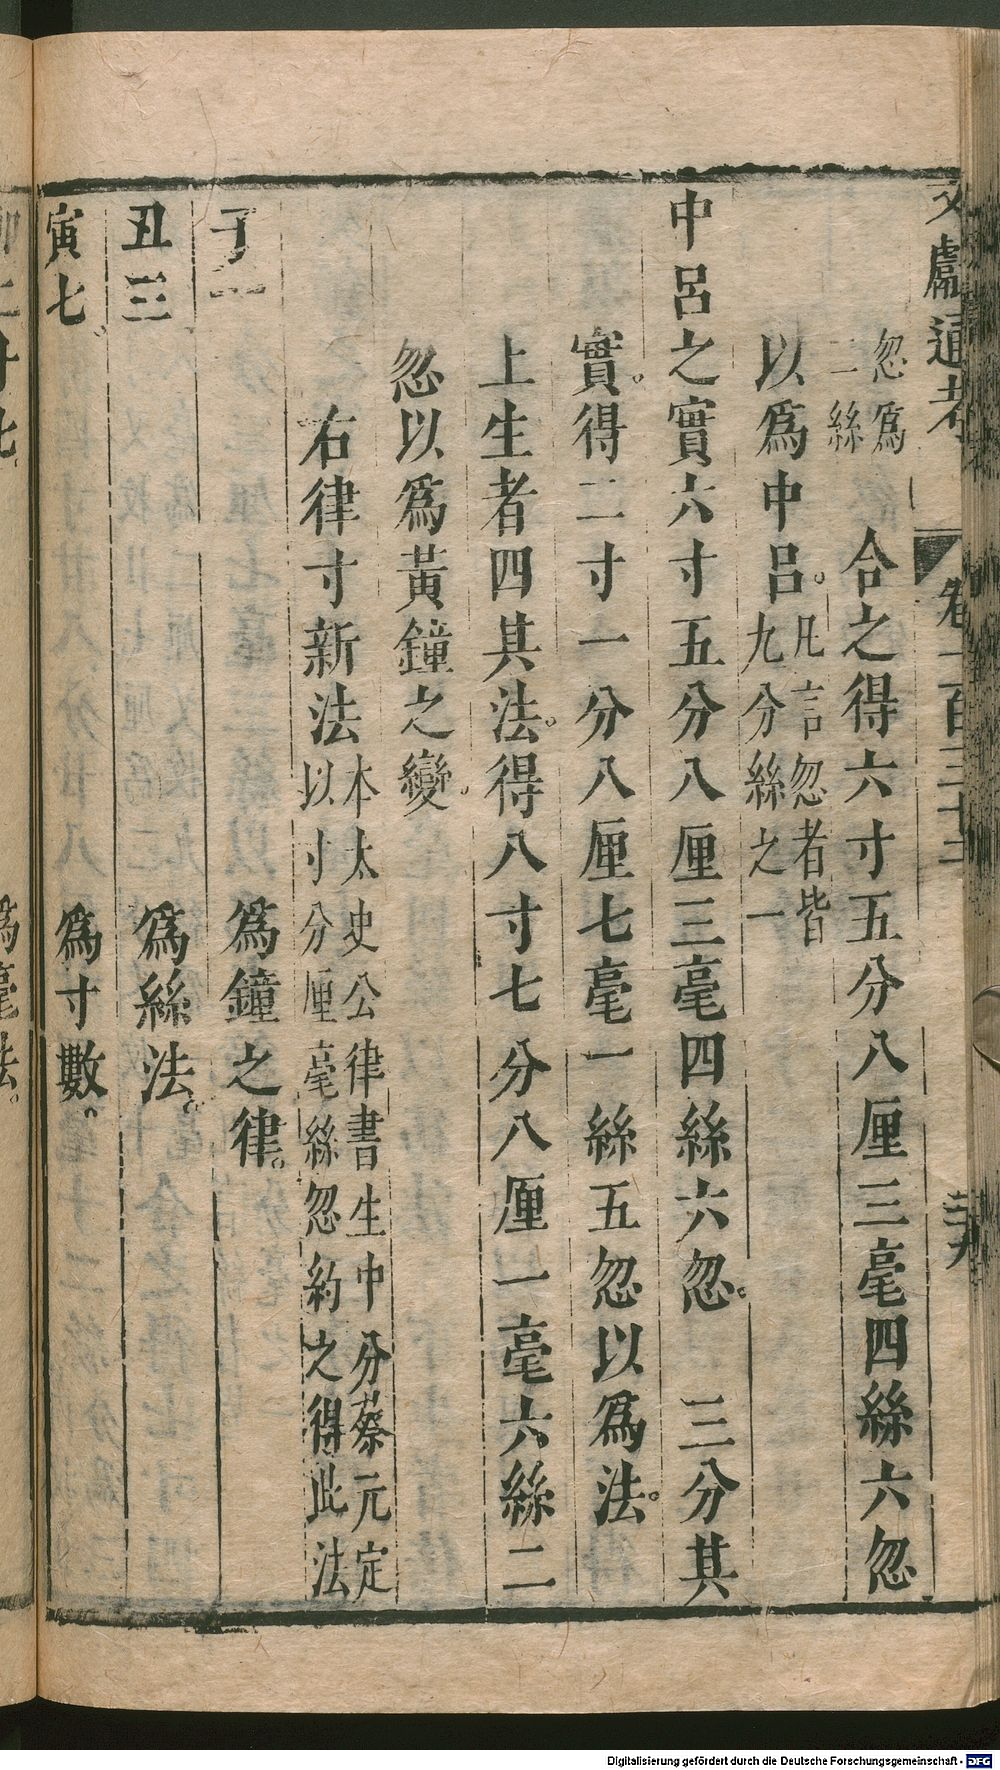 文獻通考 卷一百三十二 三十九
忽爲一絲 合之得六寸五分八厘三毫四絲六忽
以爲中呂。凡言忽者皆九分絲之一
中呂之實六寸五分八厘三毫四絲六忽。 三分其
實。得二寸一分八厘七毫一絲五忽以爲法。
上生者四其法。得八寸七分八厘一毫六絲二
忽以爲黃鐘之變。
右律寸新法本太史公律書生中分蔡元定以寸分厘毫絲忽約之得此法
子一 爲鐘之律。
丑三 爲絲法。
寅七 爲寸數。
爲毫法。
Digitalisierung gefördert durch die Deutsche Forschungsgemeinschaft - DFG